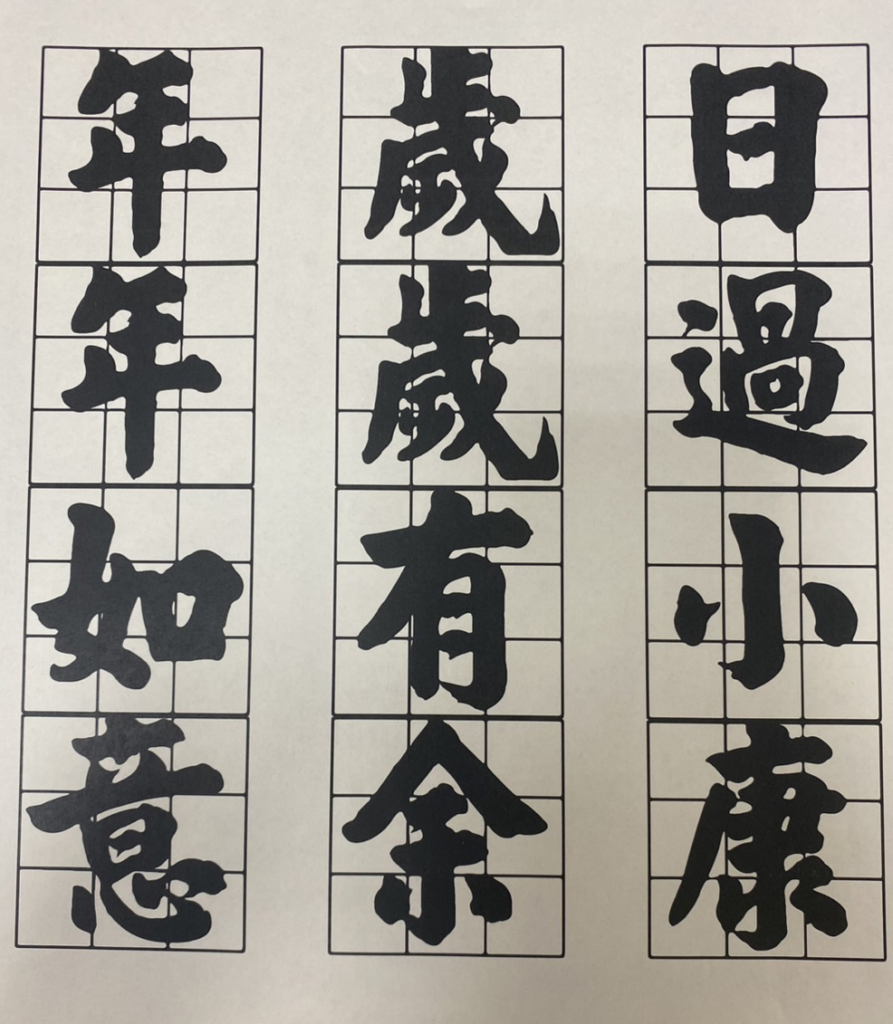 日過小康
歲歲有余
年年如意